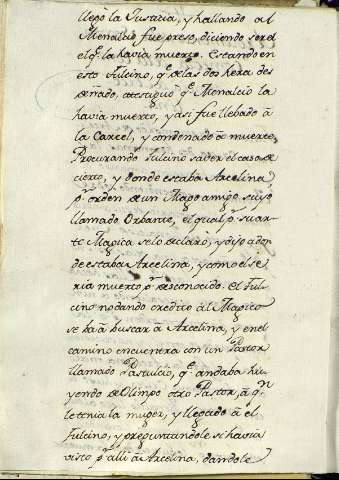 llegò la Justicia, y hallando al
Menalcio fue preso, diciendo ser el
el q.e la havia muerto. Estando en
esto Fulcino, q.e de las dos hera des
deñado, atestiguò q.e Menalcio la
havia muerto, y asi fue llebado â
la Carcel, y condenado â muerte.
Procurando Fulcino saver el caso de
cierto, y donde estaba Arcelina
p.r orden de un Mago amigo suyo
llamado Orbante, el qual p.r su ar-
te Magica selo declarò, y dijo adon
de estaba Arcelina, y como el se
ria muerto p.r desconocido. El Ful-
cino no dando credito al Magico
se ba â buscar â Arcelina, y en el
camino encuentra con un Pastor
llamado Pastulcio, q.e andaba hu-
yendo de Olimpo otro Pastor, â q.n
le tenia la muger, y llegado â el
Fulcino, y preguntandole si havia
visto p.r alli â Arcelina, dandole